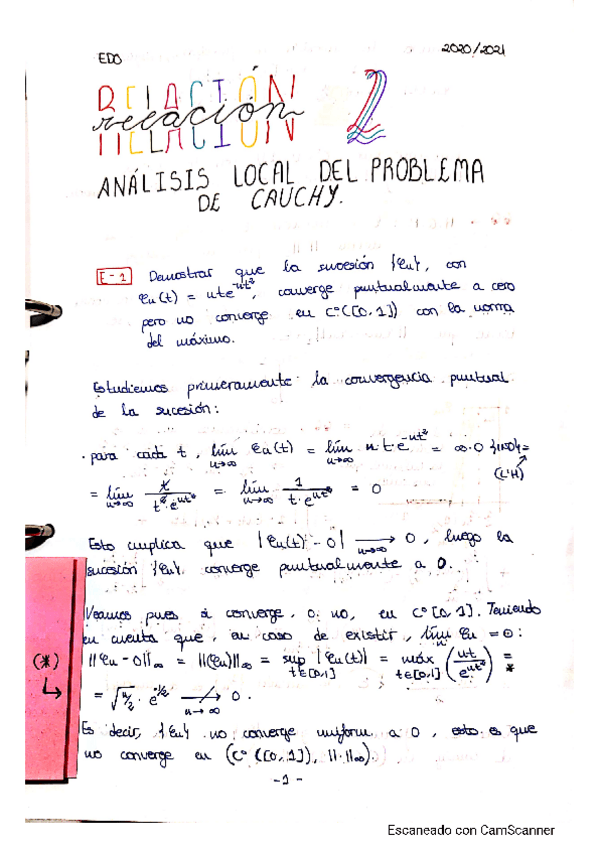 EDO
2020/2021
RELACIÓN
relación 2
ANÁLISIS LOCAL DEL PROBLEMA
DE CAUCHY.
E-1 Demostrar que la sucesión {φn}, con
φn(t) = nte^{-nt²}, converge puntualmente a cero
pero no converge en C⁰([0,1]) con la norma
del máximo.
Estudiemos primeramente la convergencia puntual
de la sucesión:
· para cada t, lím_{n→∞} φn(t) = lím_{n→∞} n·t·e^{-nt²} = ∞·0 {IND} =
(L'H)
= lím_{n→∞} t/(t²·e^{nt²}) = lím_{n→∞} 1/(t·e^{nt²}) = 0
Esto implica que |φn(t) - 0| →_{n→∞} 0, luego la
sucesión {φn} converge puntualmente a 0.
Veamos pues si converge, o no, en C⁰[0,1]. Teniendo
en cuenta que, en caso de existir, lím_n φn = 0:
(*) ||φn - 0||∞ = ||φn||∞ = sup_{t∈[0,1]} |φn(t)| = máx_{t∈[0,1]} (nt/e^{nt²}) =*
= √(n/2) · e^{-1/2} ↛_{n→∞} 0.
Es decir, {φn} no converge uniform. a 0, esto es que
no converge en (C⁰([0,1]), ||·||∞).
-1-
Escaneado con CamScanner